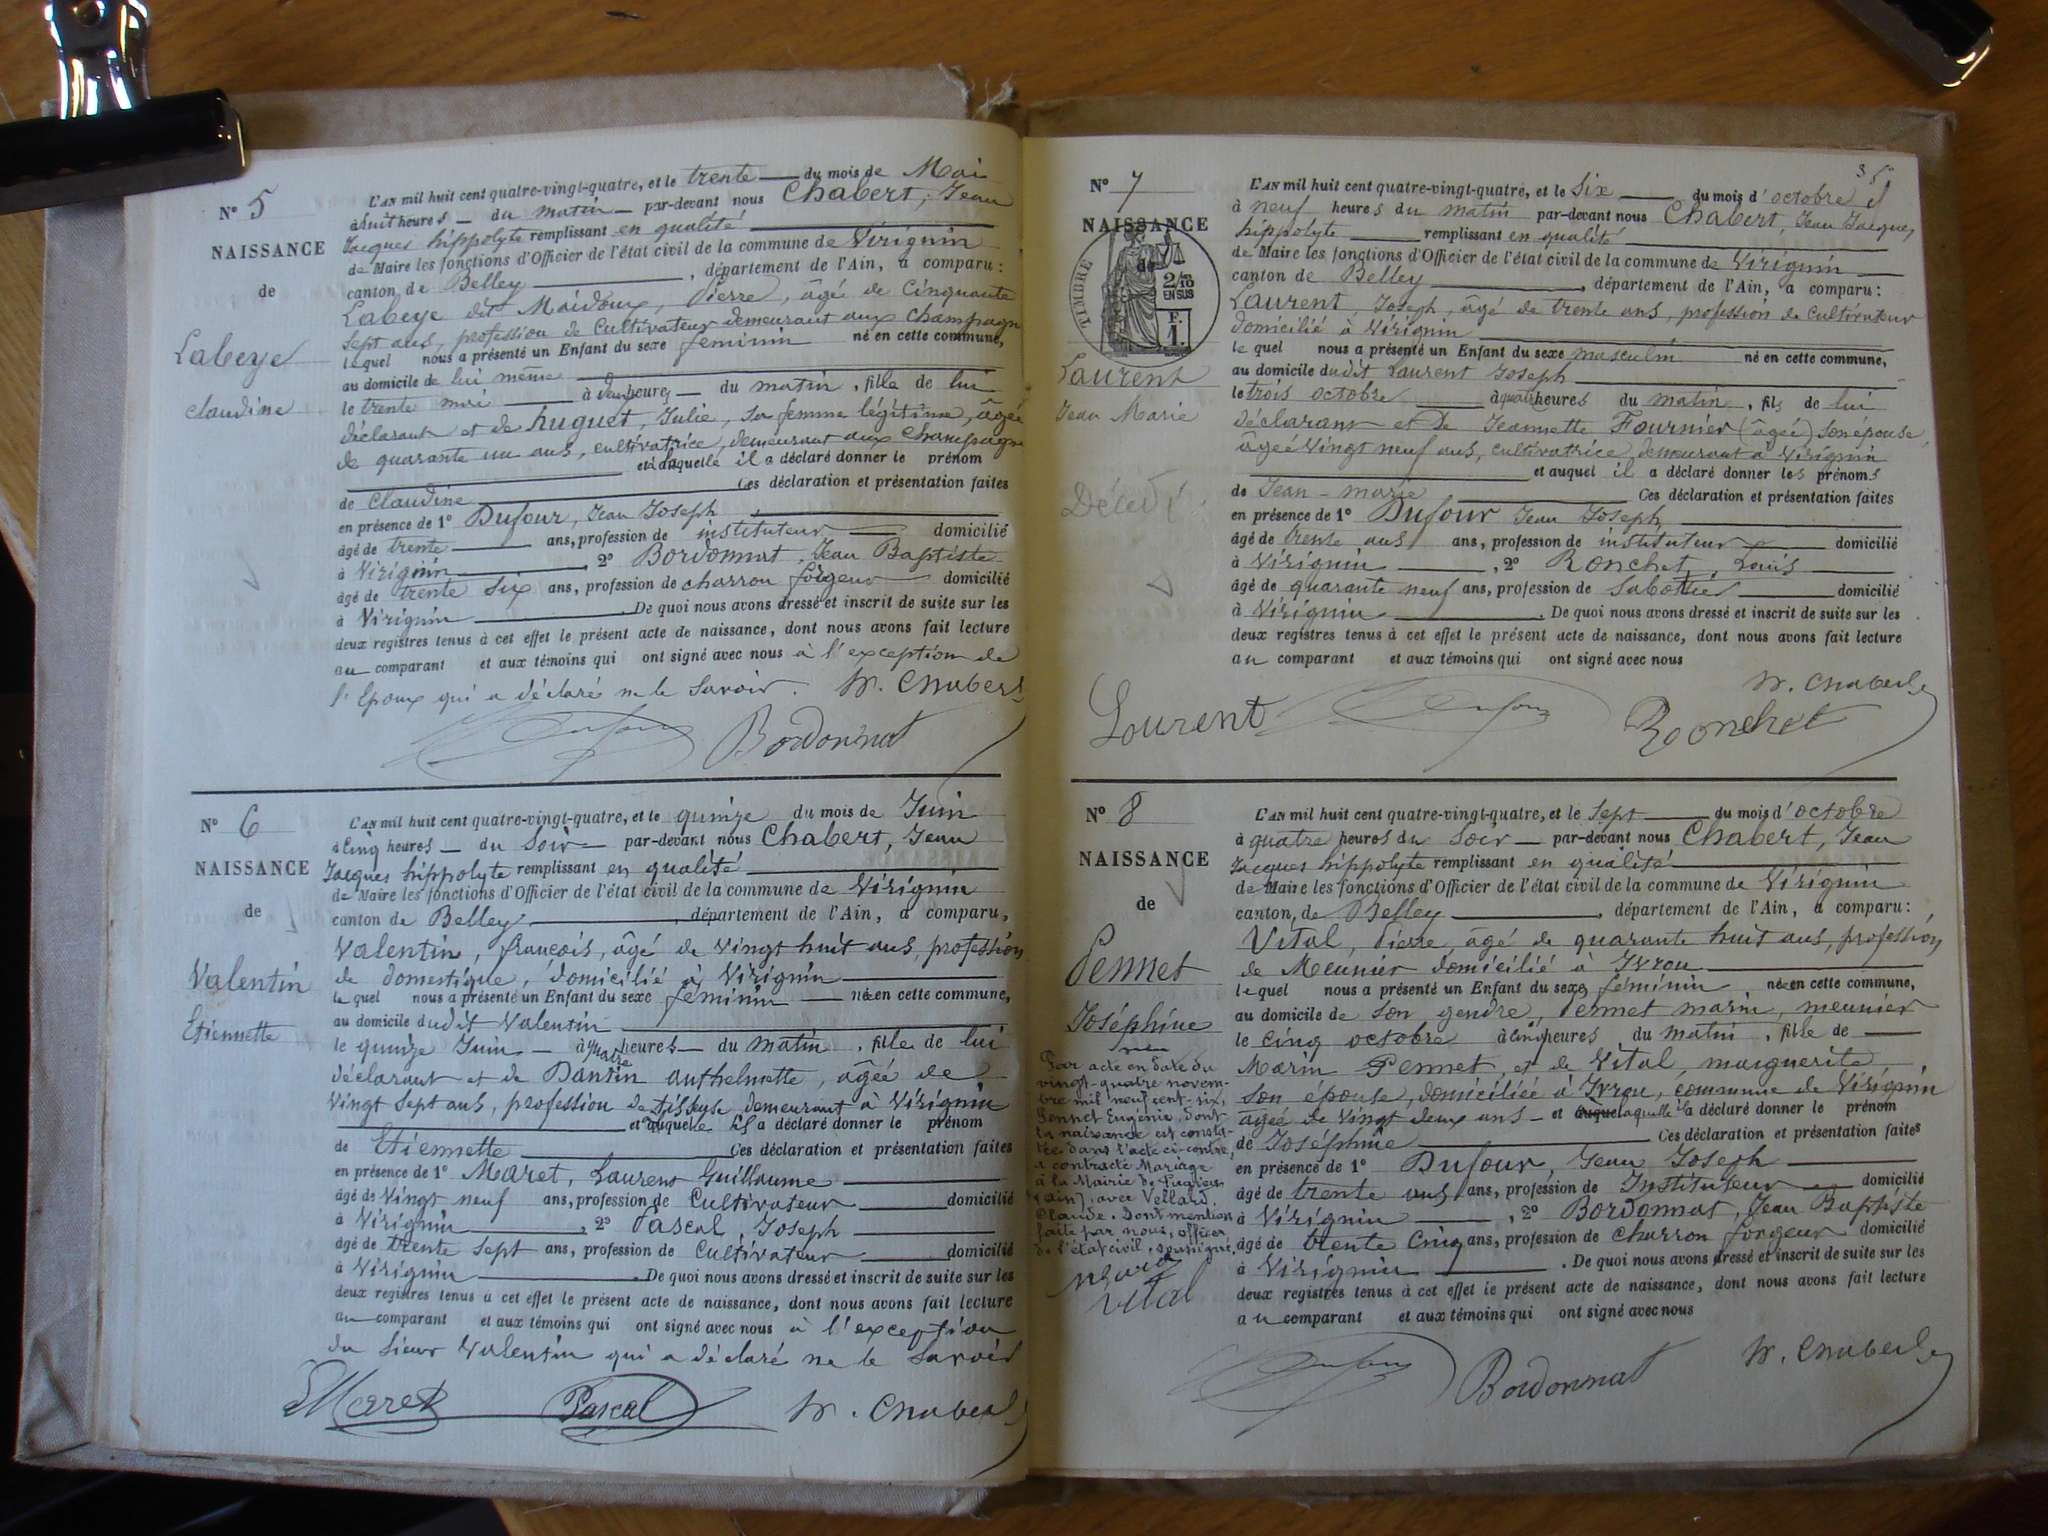 N° 5
NAISSANCE
de
Labeye
claudine
L'AN mil huit cent quatre-vingt-quatre, et le trente du mois de Mai
à huit heures du matin par-devant nous Chabert, Jean
Jacques hippolyte remplissant en qualité
de Maire les fonctions d'Officier de l'état civil de la commune de Virignin
canton de Belley, département de l'Ain, a comparu:
Labeye dit Maidoux, Pierre, âgé de Cinquante
sept ans, profession de Cultivateur demeurant aux champagne
lequel nous a présenté un Enfant du sexe feminin né en cette commune,
au domicile de lui même
le trente mai à heures du matin, fille de lui
déclarant et de huguet, Julie, sa femme légitime, âgée
de quarante un ans, cultivatrice, demeurant aux Champagne
et à laquelle il a déclaré donner le prénom
de Claudine Ces déclaration et présentation faites
en présence de 1° Dufour, Jean Joseph
âgé de trente ans, profession de instituteur domicilié
à Virignin, 2° Bordonnat, Jean Baptiste
âgé de trente six ans, profession de charron forgeur domicilié
à Virignin. De quoi nous avons dressé et inscrit de suite sur les
deux registres tenus à cet effet le présent acte de naissance, dont nous avons fait lecture
au comparant et aux témoins qui ont signé avec nous à l'exception de
l'Epoux qui a déclaré ne le savoir. H. Chabert
Dufour Bordonnat
N° 6
NAISSANCE
de
Valentin
Etiennette
L'AN mil huit cent quatre-vingt-quatre, et le quinze du mois de Juin
à Cinq heures du Soir par-devant nous Chabert, Jean
Jacques hippolyte remplissant en qualité
de Maire les fonctions d'Officier de l'état civil de la commune de Virignin
canton de Belley, département de l'Ain, a comparu,
Valentin, françois, âgé de vingt huit ans, profession
de domestique, domicilié à Virignin
lequel nous a présenté un Enfant du sexe féminin née en cette commune,
au domicile dudit Valentin
le quinze Juin à quatre heures du matin, fille de lui
déclarant et de Dantin anthelmette, âgée de
Vingt sept ans, profession de tisseuse demeurant à Virignin
et auquel il a déclaré donner le prénom
de Etiennette Ces déclaration et présentation faites
en présence de 1° Maret, Laurent Guillaume
âgé de Vingt neuf ans, profession de Cultivateur domicilié
à Virignin, 2° Pascal, Joseph
âgé de trente sept ans, profession de Cultivateur domicilié
à Virignin. De quoi nous avons dressé et inscrit de suite sur les
deux registres tenus à cet effet le présent acte de naissance, dont nous avons fait lecture
au comparant et aux témoins qui ont signé avec nous à l'exception
du sieur Valentin qui a déclaré ne le savoir
Maret Pascal H. Chabert
35
N° 7
NAISSANCE
de
TIMBRE
2/10
EN SUS
F.
1.
Laurent
Jean Marie
Décédé
L'AN mil huit cent quatre-vingt-quatre, et le Six du mois d'octobre
à neuf heures du matin par-devant nous Chabert, Jean Jacques
hippolyte remplissant en qualité
de Maire les fonctions d'Officier de l'état civil de la commune de Virignin
canton de Belley, département de l'Ain, a comparu:
Laurent, Joseph, âgé de trente ans, profession de Cultivateur
domicilié à Virignin
lequel nous a présenté un Enfant du sexe masculin né en cette commune,
au domicile dudit Laurent Joseph
le trois octobre à quatre heures du matin, fils de lui
déclarant et De Jeannette Fournier (âgée) son épouse,
âgée Vingt neuf ans, cultivatrice, demeurant à Virignin
et auquel il a déclaré donner les prénoms
de Jean-marie Ces déclaration et présentation faites
en présence de 1° Dufour Jean Joseph
âgé de trente ans ans, profession de instituteur domicilié
à Virignin, 2° Ronchet, Louis
âgé de quarante neuf ans, profession de Sabottier domicilié
à Virignin. De quoi nous avons dressé et inscrit de suite sur les
deux registres tenus à cet effet le présent acte de naissance, dont nous avons fait lecture
au comparant et aux témoins qui ont signé avec nous
H. Chabert
Laurent Dufour Ronchet
N° 8
NAISSANCE
de
Pennet
Joséphine
Par acte en date du
vingt-quatre novem-
bre mil neuf cent six,
Pennet Eugénie, dont
la naissance est consta-
tée dans l'acte ci-contre,
a contracté Mariage
à la Mairie de Pugieu
(ain), avec Velland,
Claude. Dont mention
faite par nous, officier
de l'état civil, soussigné.
Vital
L'AN mil huit cent quatre-vingt-quatre, et le Sept du mois d'octobre
à quatre heures du Soir par-devant nous Chabert, Jean
Jacques hippolyte remplissant en qualité
de Maire les fonctions d'Officier de l'état civil de la commune de Virignin
canton de Belley, département de l'Ain, a comparu:
Vital, Pierre, âgé de quarante huit ans, profession
de Meunier domicilié à Yvrou
lequel nous a présenté un Enfant du sexe féminin née en cette commune,
au domicile de son gendre, Pennet marin, meunier
le cinq octobre à cinq heures du matin, fille de
Marin Pennet, et de Vital, marguerite
son épouse, domiciliée à Yvrou, commune de Virignin
âgée de Vingt deux ans et auquel laquelle il a déclaré donner le prénom
de Joséphine Ces déclaration et présentation faites
en présence de 1° Dufour, Jean Joseph
âgé de trente ans ans, profession de Instituteur domicilié
à Virignin, 2° Bordonnat, Jean Baptiste
âgé de trente Cinq ans, profession de charron forgeur domicilié
à Virignin. De quoi nous avons dressé et inscrit de suite sur les
deux registres tenus à cet effet le présent acte de naissance, dont nous avons fait lecture
au comparant et aux témoins qui ont signé avec nous
Dufour Bordonnat H. Chabert